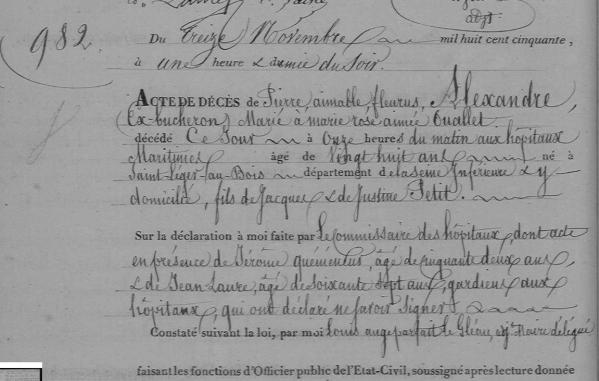 982
Du Treize Novembre mil huit cent cinquante,
à une heure & demie du soir.
ACTE DE DÉCÈS de Pierre, aimable fleurus, Alexandre,
Ex-bucheron, Marié à marie rose aimée Ouallet
décédé Ce Jour à Onze heures du matin aux hôpitaux
Maritimes âgé de Vingt huit ans né à
Saint-Léger-au-Bois département de la Seine Inférieure & y
domicilié, fils de Jacques & de Justine Petit.
Sur la déclaration à moi faite par Le Commissaire des hôpitaux, dont acte
en présence de Jérôme quéméneus, âgé de cinquante deux ans,
& de Jean Laure, âgé de soixante sept ans, gardiens aux
hôpitaux, qui ont déclaré ne savoir signer
Constaté suivant la loi, par moi Louis ange parfait le Gléau, adj. Maire délégué
faisant les fonctions d'Officier public de l'Etat-Civil, soussigné après lecture donnée